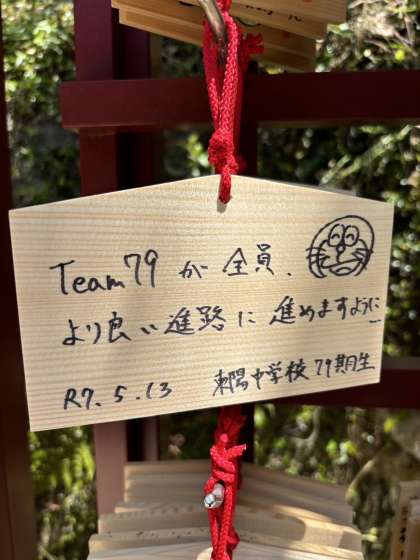 Team79 が 全員、
より良い進路に 進めますように
R7.5.13 東陽中学校 79期生